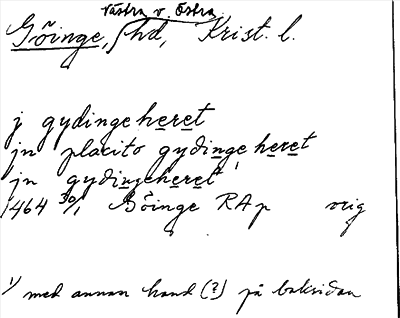 Västra o. Östra
Göinge, hd, Krist. l.
j gydingeheret
jn placito gydinge heret
jn gydingeheret 1)
1464 30/1 Göinge RAp orig
1) med annan hand (?) på baksidan